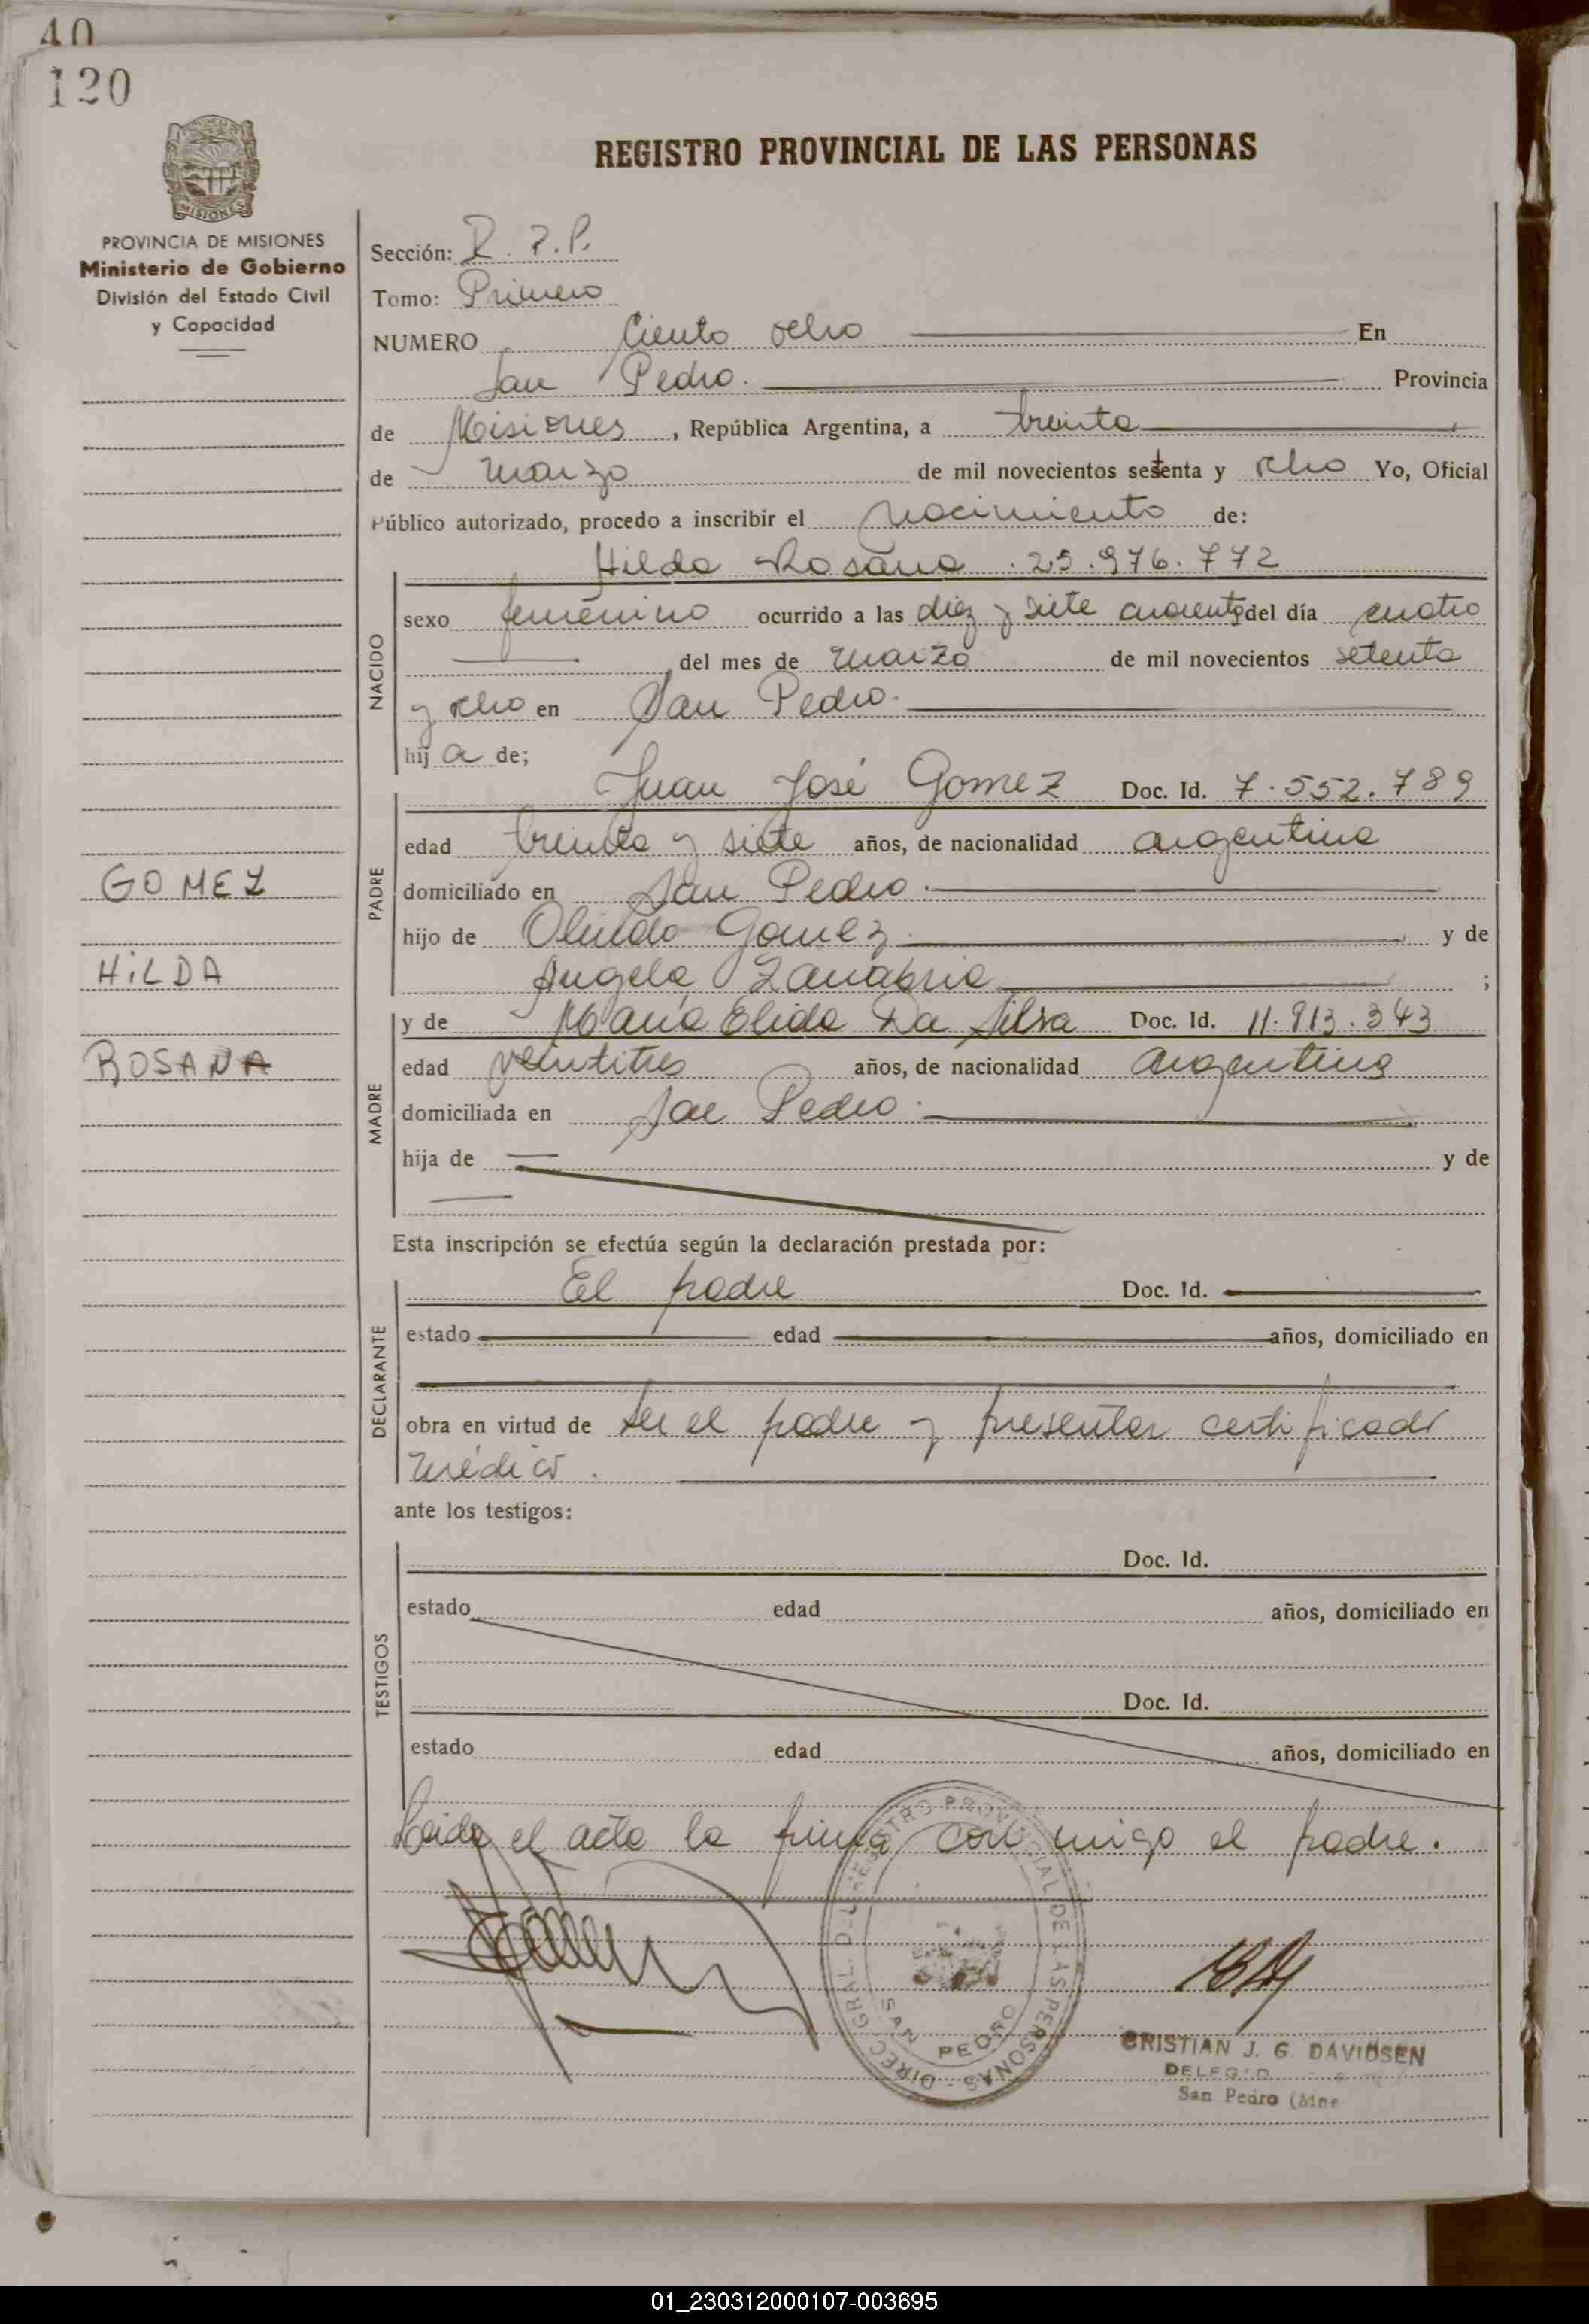 40
120
MISIONES
PROVINCIA DE MISIONES
Ministerio de Gobierno
División del Estado Civil
y Capacidad
REGISTRO PROVINCIAL DE LAS PERSONAS
Sección: R.P.P.
Tomo: Primero
NUMERO Ciento ocho En
San Pedro. Provincia
de Misiones, República Argentina, a treinta
de marzo de mil novecientos setenta y ocho Yo, Oficial
Público autorizado, procedo a inscribir el nacimiento de:
NACIDO
Hilda Rosana . 25.976.772
sexo femenino ocurrido a las diez y siete cuarenta del día cuatro
del mes de marzo de mil novecientos setenta
y ocho en San Pedro.
hij a de;
PADRE
Juan José Gomez Doc. Id. 7.552.789
edad treinta y siete años, de nacionalidad argentina
domiciliado en San Pedro.
hijo de Olindo Gomez y de
Angela Zanabria ;
MADRE
y de María Elida Da Silva Doc. Id. 11.913.343
edad veintitres años, de nacionalidad argentina
domiciliada en San Pedro.
hija de y de
GOMEZ
HILDA
ROSANA
Esta inscripción se efectúa según la declaración prestada por:
DECLARANTE
El padre Doc. Id.
estado edad años, domiciliado en
obra en virtud de ser el padre y presentar certificado
médico.
ante los testigos:
TESTIGOS
Doc. Id.
estado edad años, domiciliado en
Doc. Id.
estado edad años, domiciliado en
Leida el acta la firma con migo el padre.
DIREC. GRAL. DEL REGISTRO PROVINCIAL DE LAS PERSONAS
SAN PEDRO
CRISTIAN J. G. DAVIDSEN
San Pedro (Mnes
01_230312000107-003695